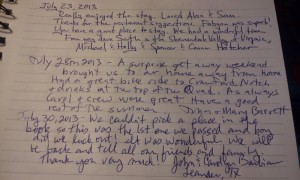 July 23, 2013
Really enjoyed the stay. Loved Alan & Sam.
Thanks for the restaurant suggestion. Fabyans was superb!
You have a great place to stay. We had a wonderful
from way down South of the Shenandoah Valley, Virginia
Michael & Holly & Spencer & Connor
July 28th 2013 - A surprise get away weekend
brought us to our home away from home
Had a great bike ride to Crawford Notch
& drinks at the top of the Quad. As always
Caryl & crew were great. Have a good
rest of the summer. John & Mary Barrett
July 30, 2013 - We couldn't pick a place in the
book so this was the 1st one we passed and boy
did we luck out! It was wonderful. We will
be back and tell all our friends and family.
Thank you very much! John & Carolyn
Leander, TX